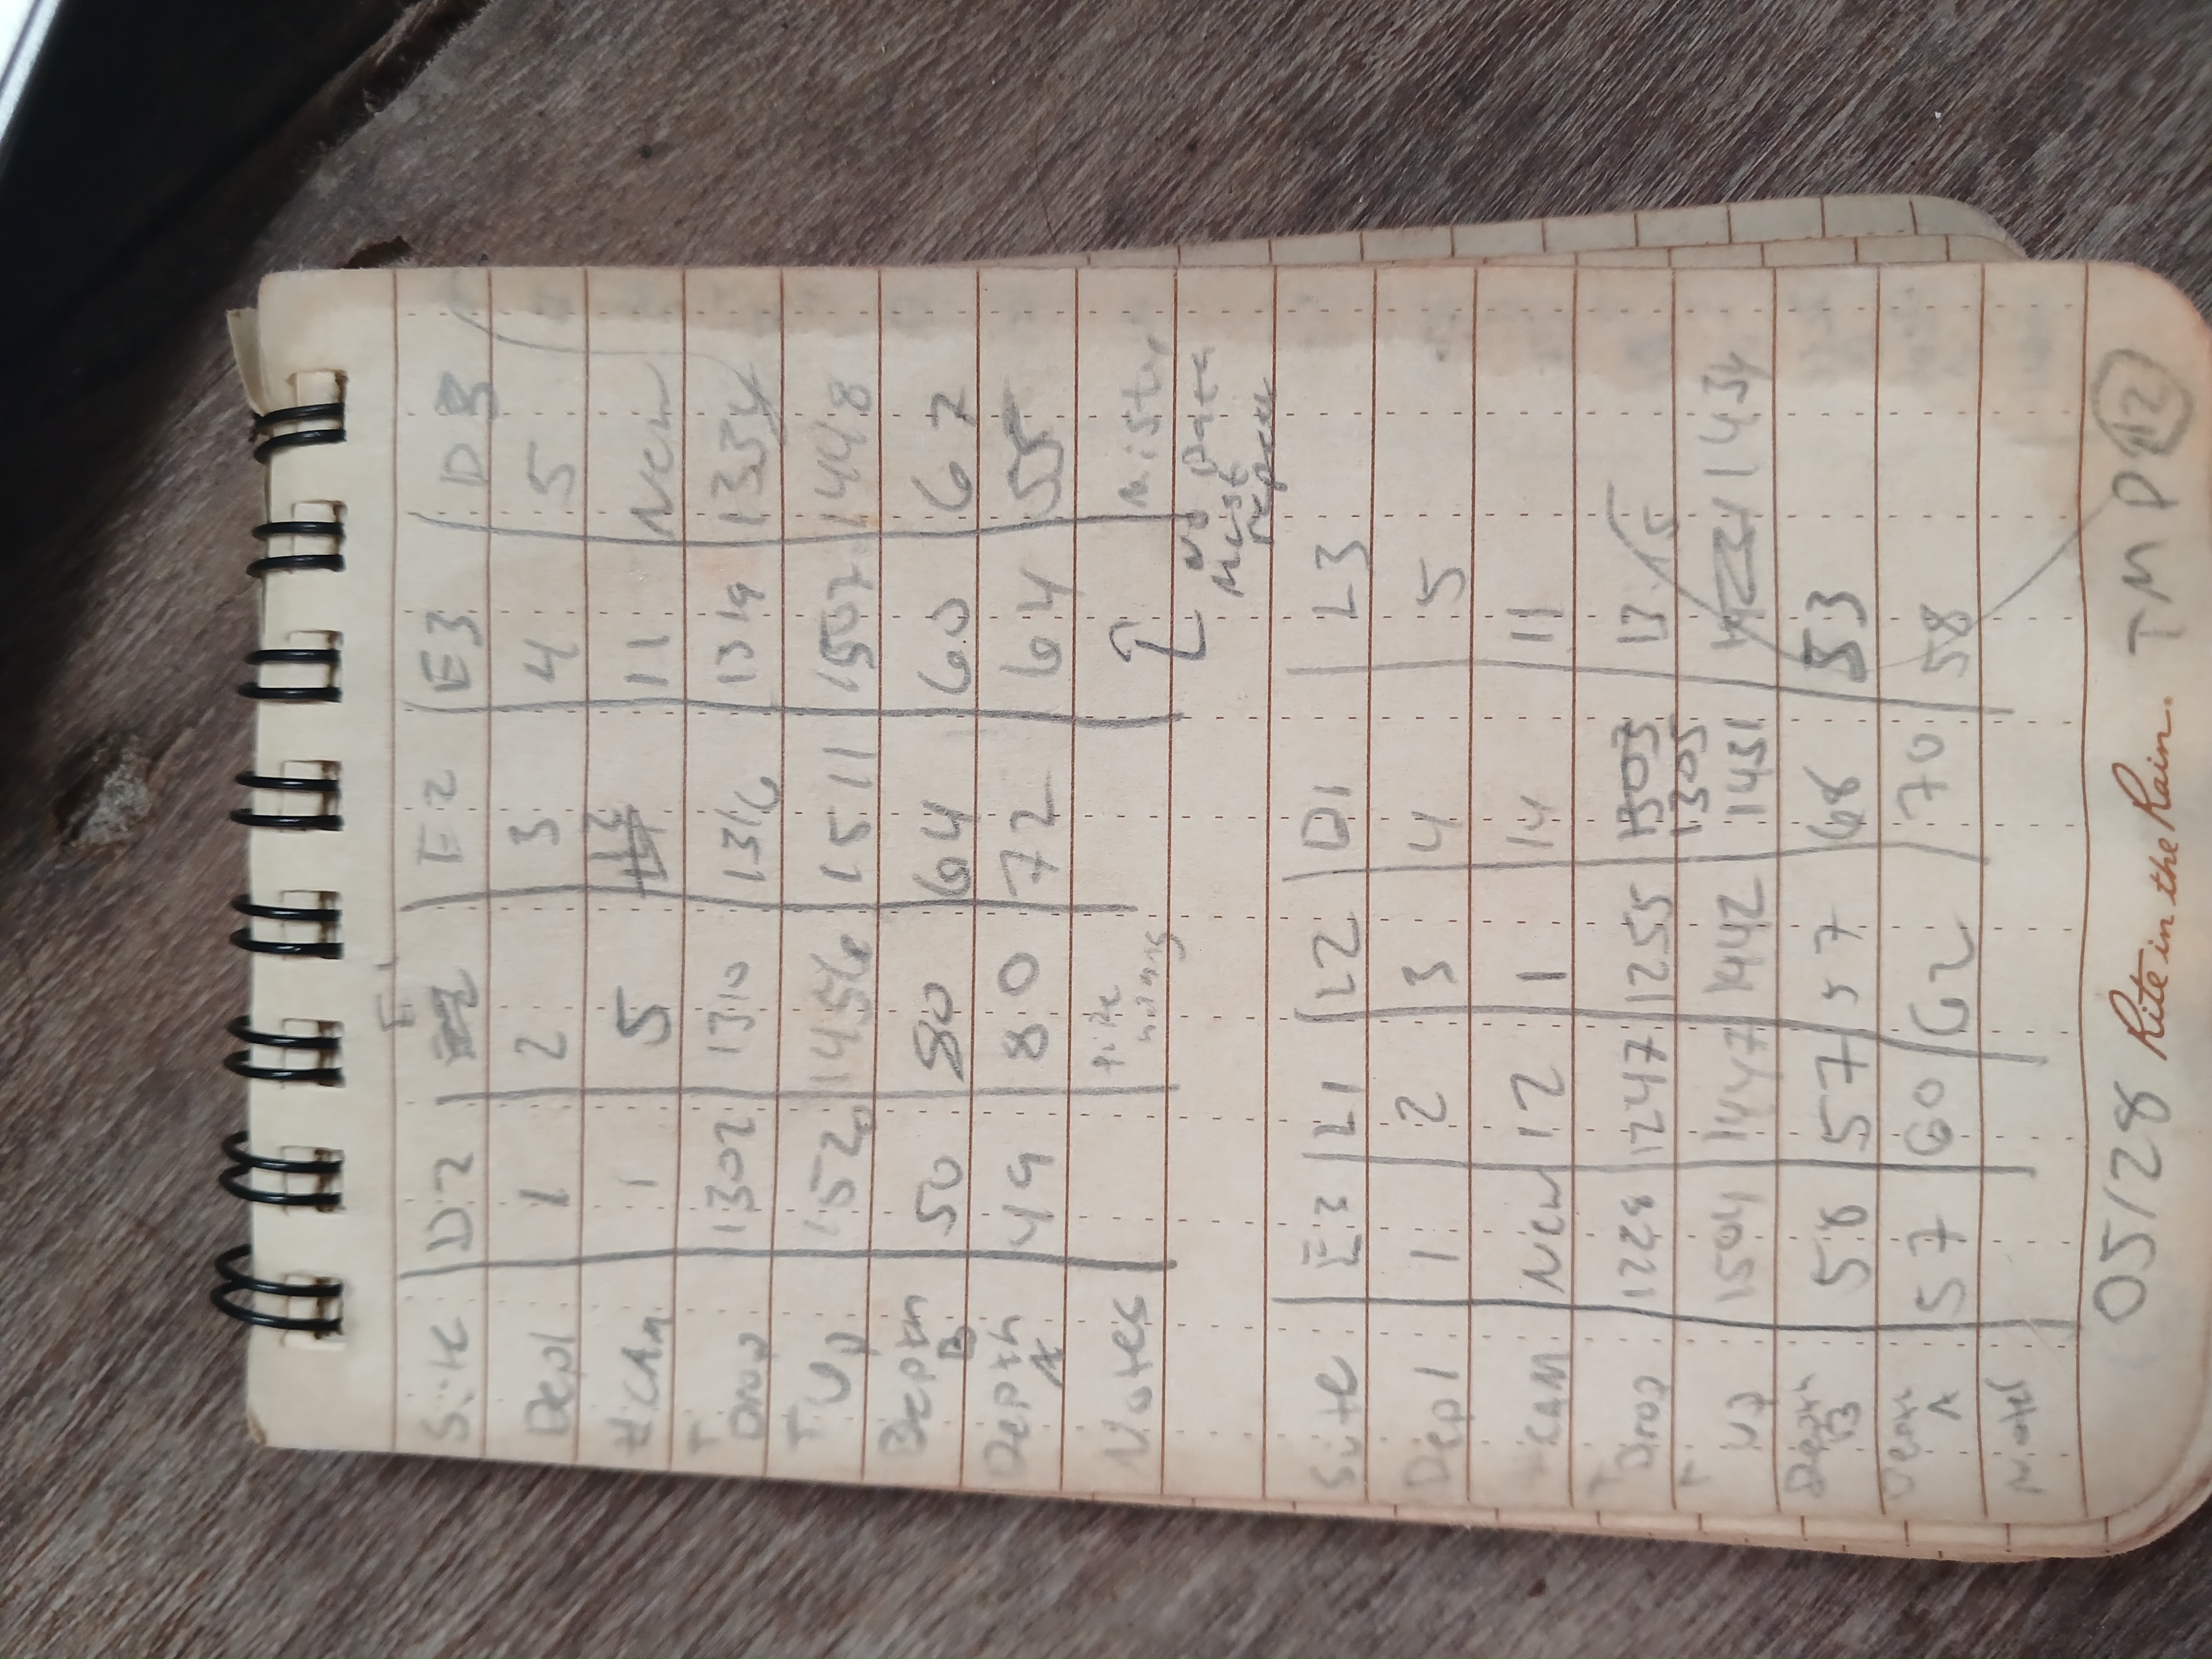 E1
Site D2 E2 E3 D3
Depl 1 2 3 4 5
12
#CAm 1 5 11 New
T Drop 1302 1310 1316 1319 1334
T Up 1520 1456 1511 1507 1448
Depth B 50 80 64 60 67
Depth A 49 80 72 64 55
Notes
No Data
Must
repeat
Site E3 L1 L2 D1 L3
Depl 1 2 3 4 5
CAM New 12 1 14 11
T Drop 1228 1247 1255 1303 13 15
1305
T Up 1504 1447 1442 1431 1434
Depth B 58 57 57 68 53
Depth A 57 60 62 70 58
Notes
05/28 Rite in the Rain. TMP 12